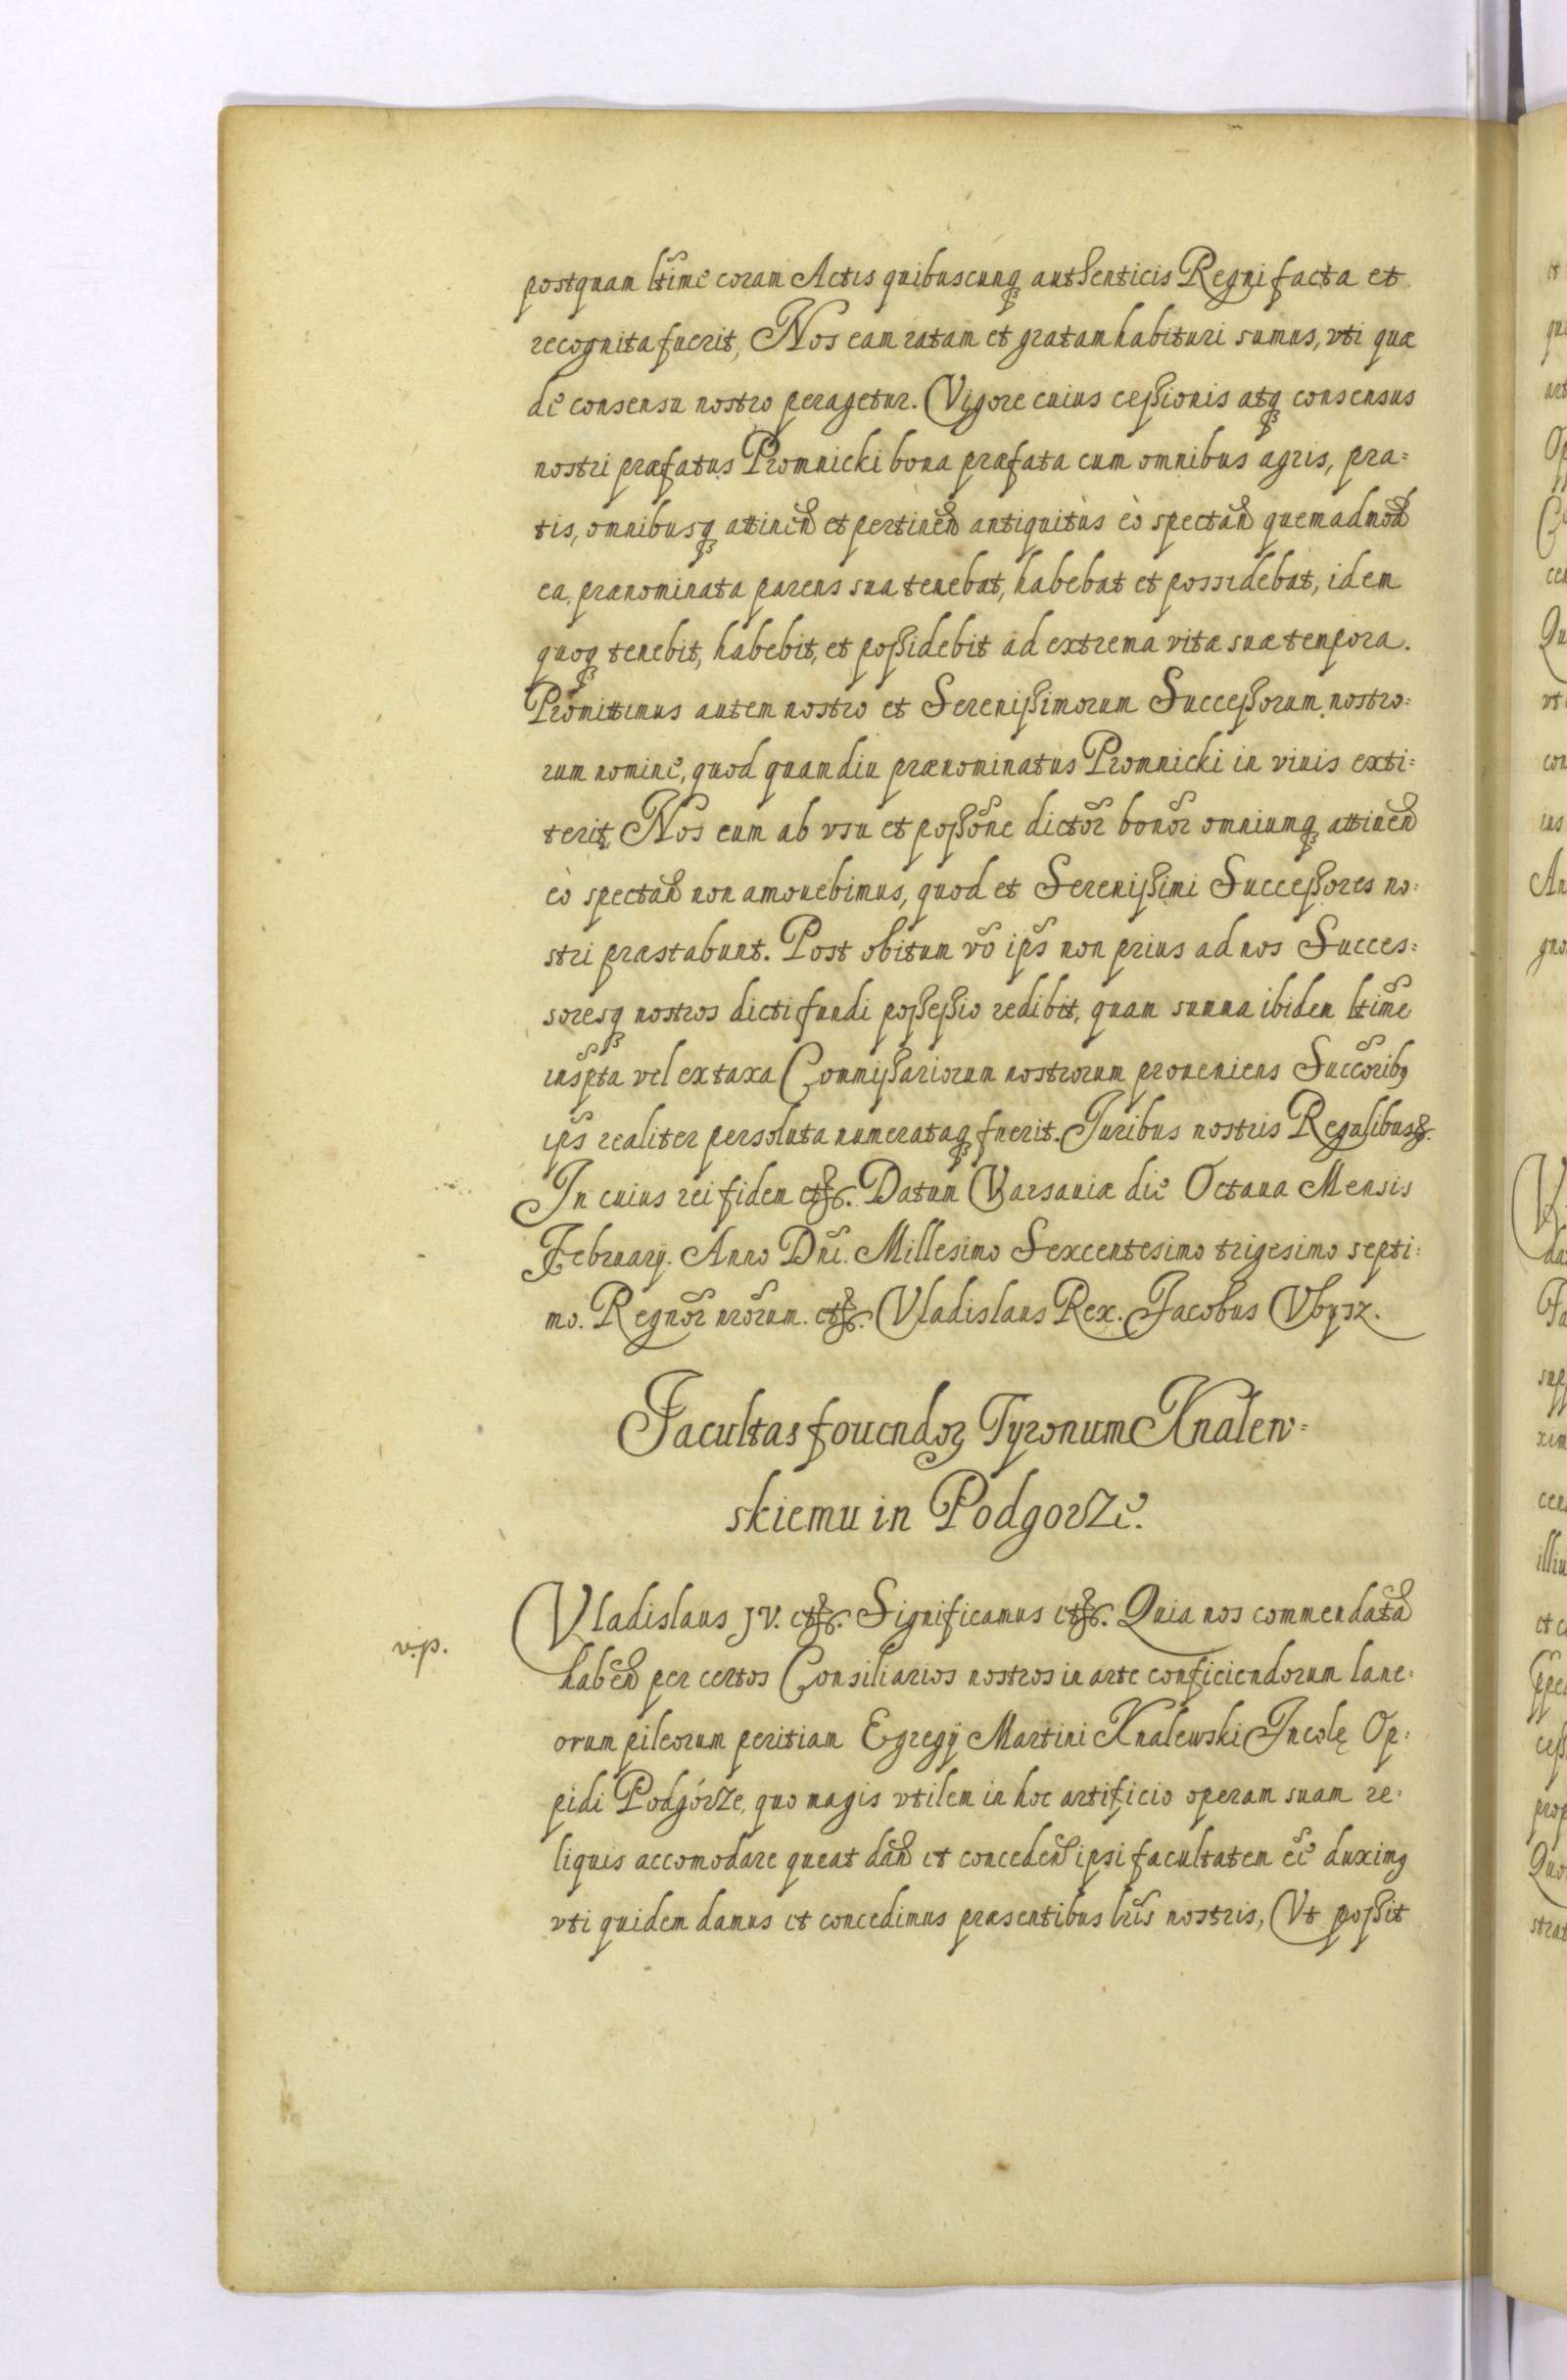 postquam ltimè coram Actis quibuscunq authenticis Regni facta et
recognita fuerit, Nos eam ratam et gratam habituri sumus, vti quæ
de consensu nostro peragetur. Vigore cuius ceßionis atq consensus
nostri præfatus Promnicki bona præfata cum omnibus agris, pra=
tis, omnibusq attinen et pertinen antiquitùs eò spectan quemadmod
ea prænominata parens sua tenebat, habebat et possidebat, idem
quoq tenebit, habebit, et poßidebit ad extrema vitæ suæ tempora.
Promittimus autem nostro et Serenißimorum Succeßorum nostro=
rum nomine, quod quamdiu prænominatus Promnicki in viuis exti=
terit, Nos eum ab vsu et poßone dictor bonor omniumq attinen
eò spectan non amouebimus, quod et Serenißimi Succeßores no=
stri præstabunt. Post obitum vo ips non prius ad nos Succes=
soresq nostros dicti fundi poßeßio redibit, quam summa ibidem ltime
inspta vel ex taxa Commißariorum nostrorum proueniens Succoribq
ips realiter persoluta numerataq fuerit. Juribus nostris Regalibus &.
In cuius rei fidem etc. Datum Varsauiæ die Octaua Mensis
February. Anno Dni. Millesimo Sexcentesimo trigesimo septi=
mo. Regnor nrorum. etc. Vladislaus Rex. Jacobus Vbysz.
Facultas fouendoꝝ Tyronum Knalew=
skiemu in Podgorze.
v.p.
Vladislaus JV. etc. Significamus etc. Quia nos commendata
haben per certos Consiliarios nostros in arte conficiendorum lane=
orum pileorum peritiam Egregij Martini Knalewski Incolę Op=
pidi Podgórze, quo magis vtilem in hoc artificio operam suam re=
liquis accomodare queat dan et conceden ipsi facultatem eè duximq
vti quidem damus et concedimus præsentibus lris nostris, Vt poßit